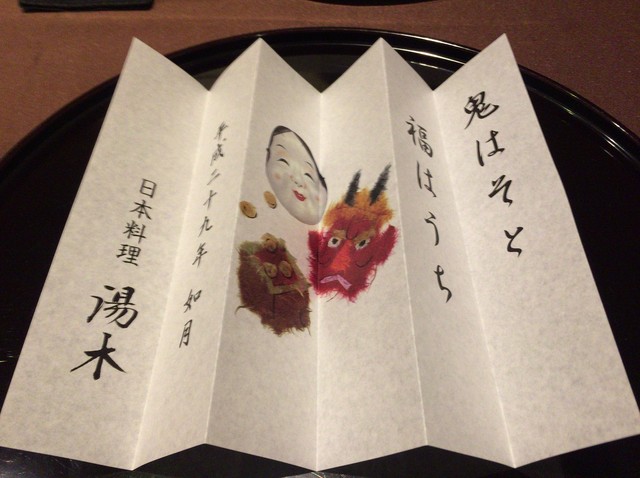 鬼はそと
福はうち
平成二十九年 如月
日本料理
湯木